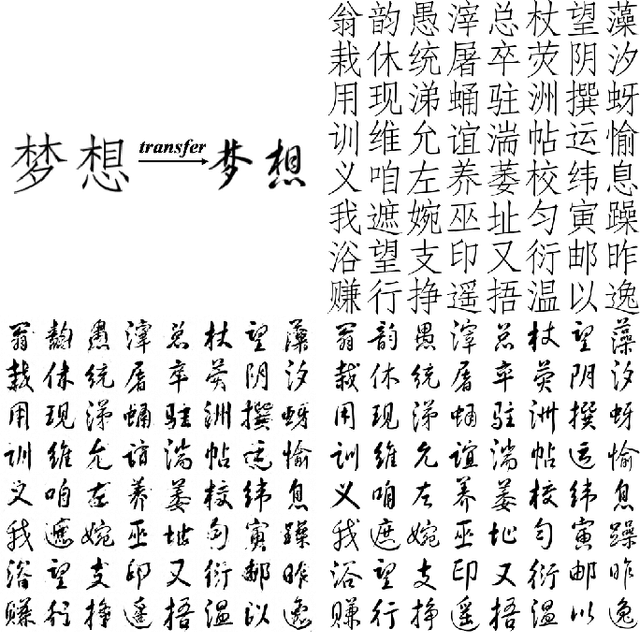 梦想 transfer 梦想
翁韵愚滓总杖望藻
栽休统屠卒荧阴汐
用现涕蛹驻洲撰蚜
训维允谊湍帖运愉
义咱左养萎校纬息
我遮婉巫址匀寅躁
浴望支印又衍邮昨
赚行挣遥捂温以逸
翁韵愚滓总杖望藻
栽休统屠卒荧阴汐
用现涕蛹驻洲撰蚜
训维允谊湍帖运愉
义咱左养萎校纬息
我遮婉巫址匀寅躁
浴望支印又衍邮昨
赚行挣遥捂温以逸
翁韵愚滓总杖望藻
栽休统屠卒荧阴汐
用现涕蛹驻洲撰蚜
训维允谊湍帖运愉
义咱左养萎校纬息
我遮婉巫址匀寅躁
浴望支印又衍邮昨
赚行挣遥捂温以逸